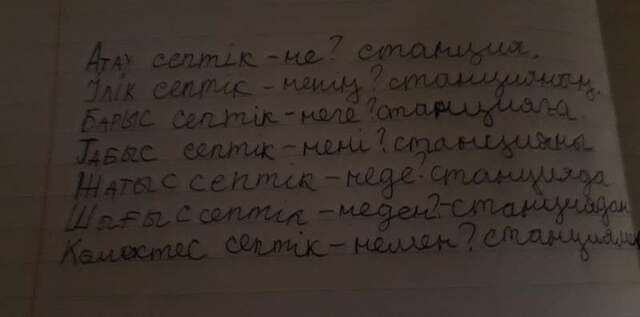 Атау септік - не? станция.
Ілік септік - ненің? станцияның.
Барыс септік - неге? станцияға.
Табыс септік - нені? станцияны
Жатыс септік - неде? станцияда
Шығыс септік - неден? - станциядан
Көмектес септік - немен? станциямен